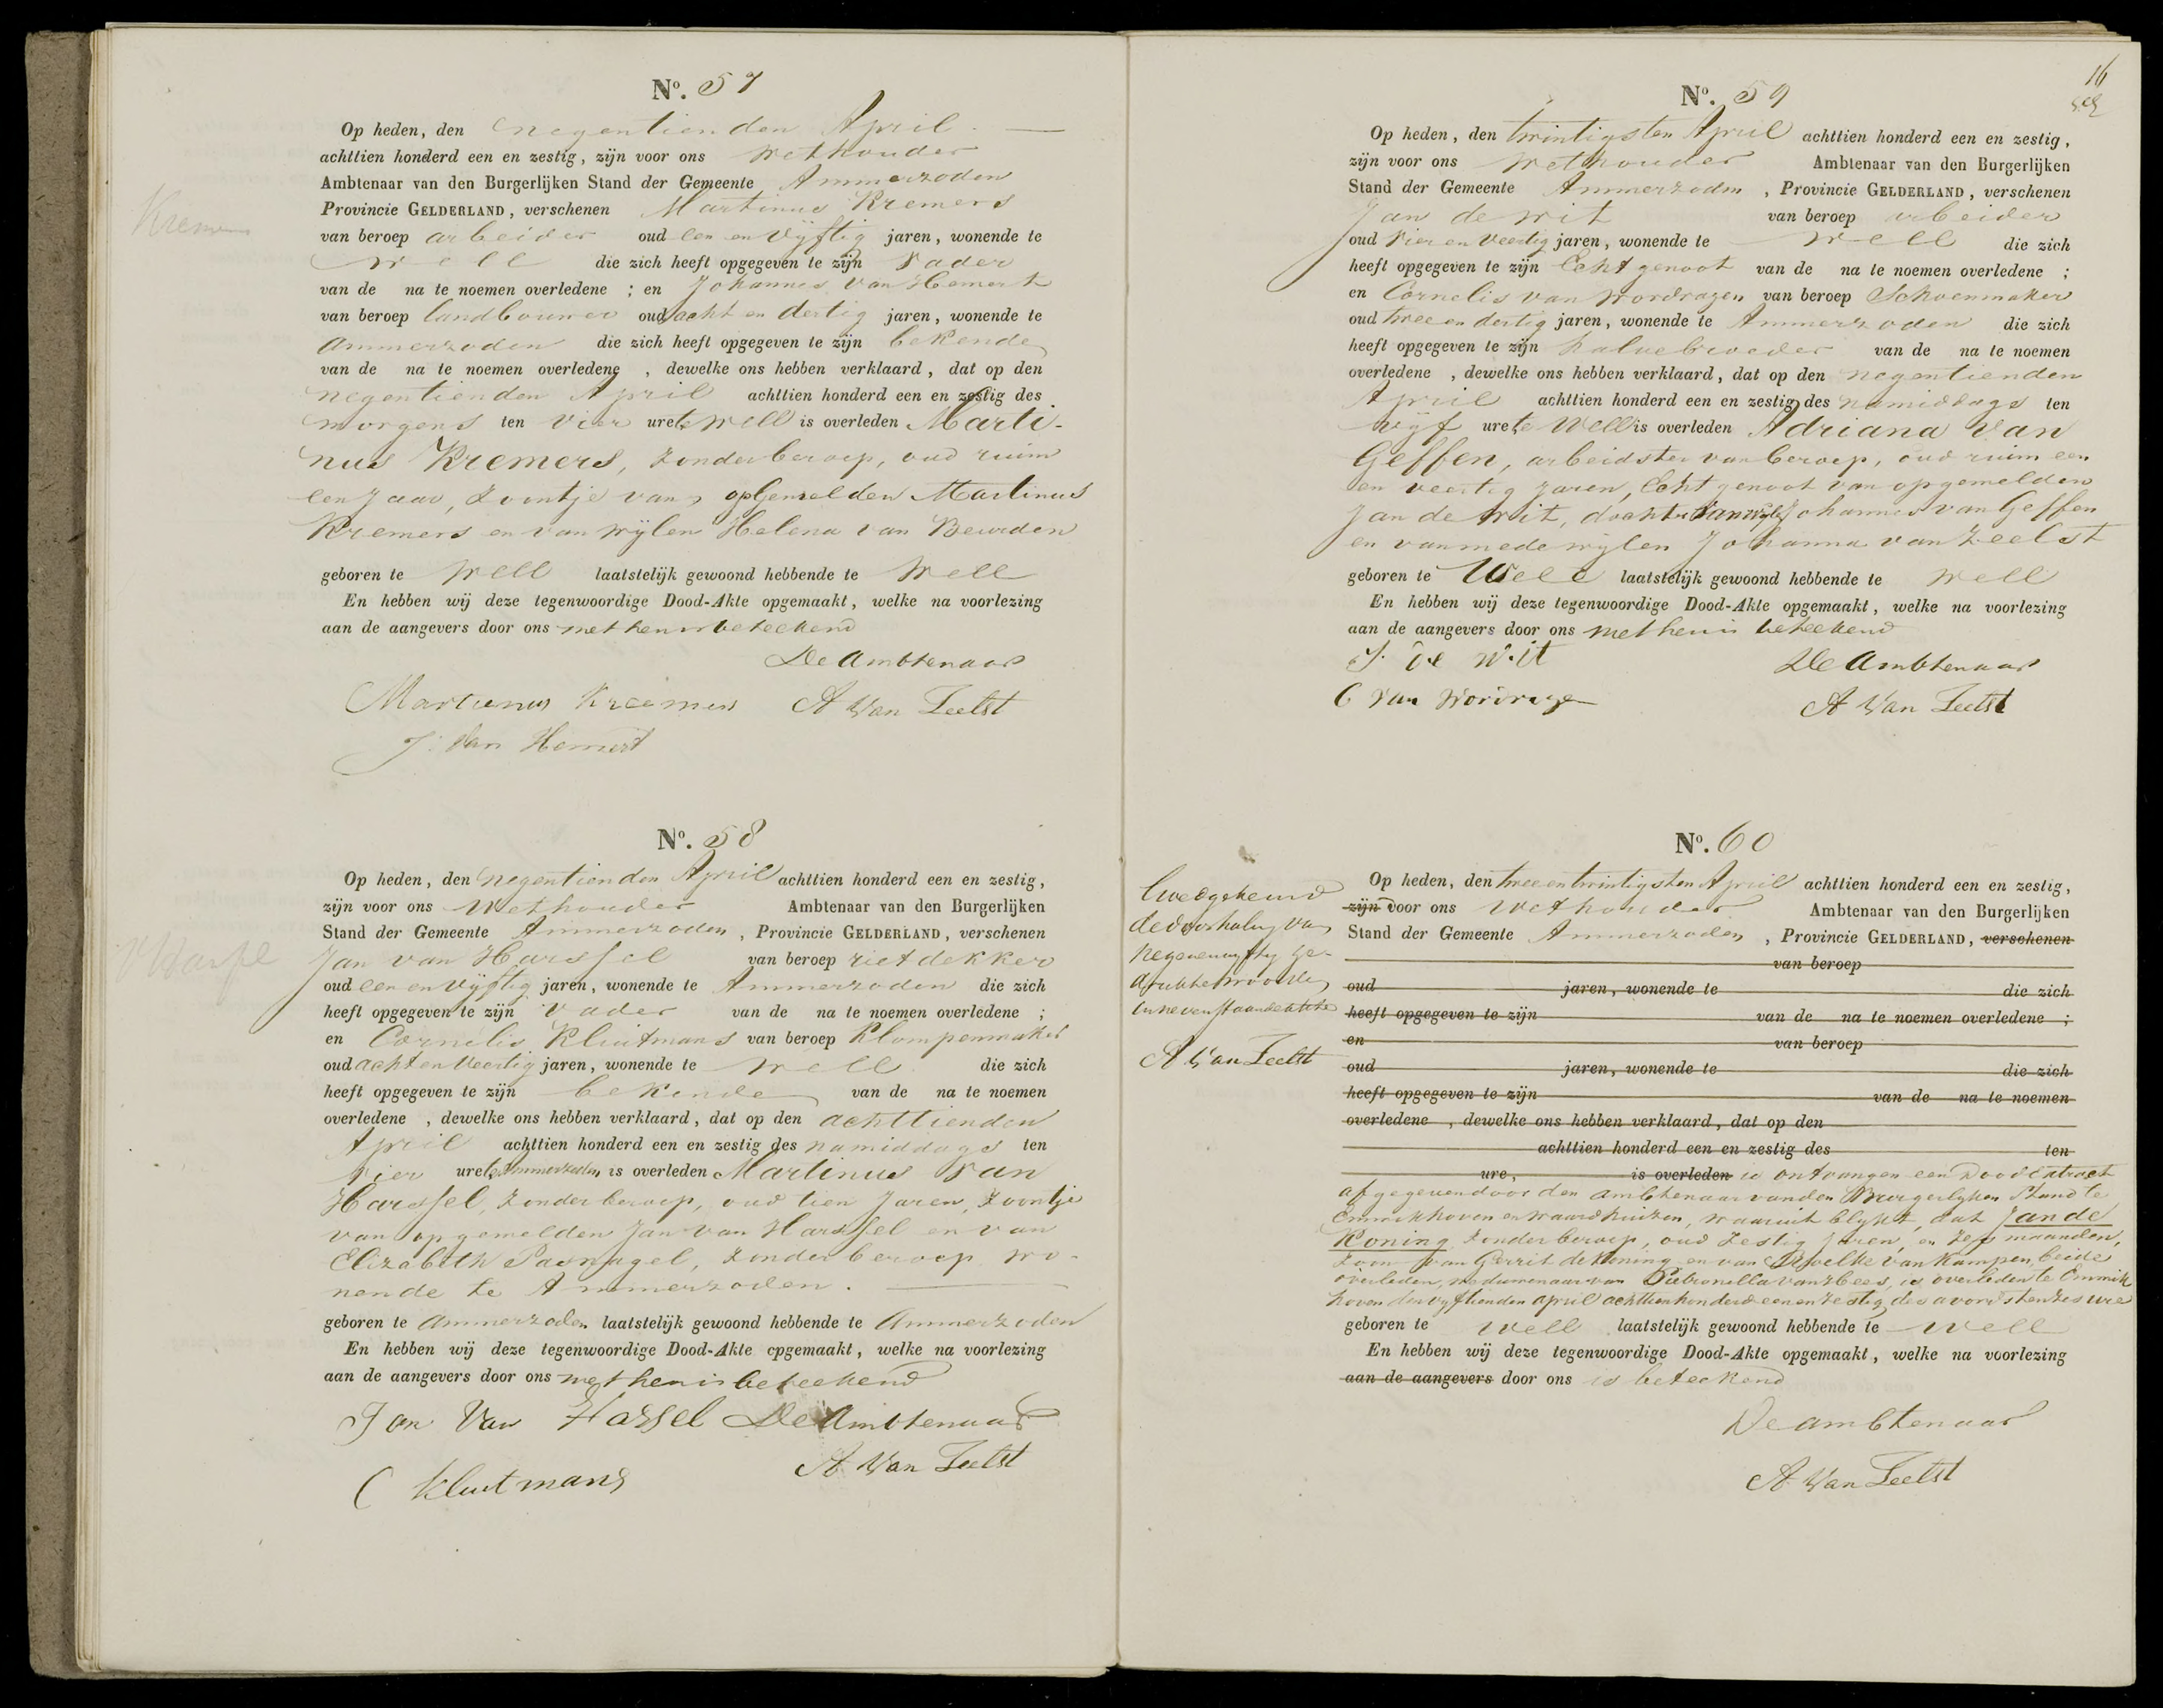 Kremers
No. 57
Op heden, den negentienden April
achttien honderd een en zestig, zijn voor ons wethouder
Ambtenaar van den Burgerlijken Stand der Gemeente Ammerzoden
Provincie GELDERLAND, verschenen Martinus Kremers
van beroep arbeider oud een en vijftig jaren, wonende te
Well die zich heeft opgegeven te zijn vader
van de na te noemen overledene ; en Johannes van Hemert
van beroep landbouwer oud acht en dertig jaren, wonende te
ammerzoden die zich heeft opgegeven te zijn bekende
van de na te noemen overledene , dewelke ons hebben verklaard, dat op den
negentienden April achttien honderd een en zestig des
morgens ten vier ure te Well is overleden Marti-
nus Kremers, zonder beroep, oud ruim
een jaar, zoontje van opgemelden Martinus
Kremers en van wijlen Helena van Beurden
geboren te Well laatstelijk gewoond hebbende te Well
En hebben wij deze tegenwoordige Dood-Akte opgemaakt, welke na voorlezing
aan de aangevers door ons met hen is beteekend
De Ambtenaar
Martienus Kreemers A Van Zeelst
J: Van Hemert
No. 58
Op heden, den negentienden April achttien honderd een en zestig,
zijn voor ons Wethouder Ambtenaar van den Burgerlijken
Stand der Gemeente Ammerzoden, Provincie GELDERLAND, verschenen
Jan van Harssel van beroep rietdekker
oud een en vijftig jaren, wonende te Ammerzoden die zich
heeft opgegeven te zijn vader van de na te noemen overledene ;
en Cornelis Kluitmans van beroep Klompenmaker
oud acht en veertig jaren, wonende te Well die zich
heeft opgegeven te zijn bekende van de na te noemen
overledene , dewelke ons hebben verklaard, dat op den achttienden
April achttien honderd een en zestig des namiddags ten
vier ure te Ammerzoden is overleden Martinus van
Harssel, zonder beroep, oud tien jaren, zoontje
van opgemelden Jan van Harssel en van
Elizabeth Paşnagel, zonder beroep wo-
nende te Ammerzoden.
geboren te Ammerzoden laatstelijk gewoond hebbende te Ammerzoden
En hebben wij deze tegenwoordige Dood-Akte cpgemaakt, welke na voorlezing
aan de aangevers door ons met hen is beteekend
Jan Van Hassel De Ambtenaar
A Van Zeelst
C Kluitmans
16
No. 59
Op heden, den twintigsten April achttien honderd een en zestig,
zijn voor ons wethouder Ambtenaar van den Burgerlijken
Stand der Gemeente Ammerzoden, Provincie GELDERLAND, verschenen
Jan de Wit van beroep arbeider
oud vier en veertig jaren, wonende te Well die zich
heeft opgegeven te zijn Echtgenoot van de na te noemen overledene ;
en Cornelis van Wordragen van beroep Schoenmaker
oud twee en dertig jaren, wonende te Ammerzoden die zich
heeft opgegeven te zijn halvebroeder van de na te noemen
overledene , dewelke ons hebben verklaard, dat op den negentienden
April achttien honderd een en zestig des namiddags ten
vijf ure te Well is overleden Adriana van
Geffen, arbeidster van beroep, oud ruim een
en veertig jaren, Echtgenoot van opgemelden
Jan de Wit, dochter van wijlen Johannes van Geffen
en van mede wijlen Johanna van Zeelst
geboren te Well laatstelijk gewoond hebbende te Well
En hebben wij deze tegenwoordige Dood-Akte opgemaakt, welke na voorlezing
aan de aangevers door ons met hen is beteekend
J. de Wit De Ambtenaar
C van Wordrage A Van Zeelst
No. 60
Goedgekeurd
de doorhaling van
negenenvyftig ge-
drukte woorden
in nevenstaande akte
A Van Zeelst
Op heden, den twee en twintigsten April achttien honderd een en zestig,
zijn voor ons Wethouder Ambtenaar van den Burgerlijken
Stand der Gemeente Ammerzoden, Provincie GELDERLAND, verschenen
van beroep
oud jaren, wonende te die zich
heeft opgegeven te zijn van de na te noemen overledene ;
en van beroep
oud jaren, wonende te die zich
heeft opgegeven te zijn van de na te noemen
overledene , dewelke ons hebben verklaard, dat op den
achttien honderd een en zestig des ten
ure, is overleden is ontvangen een Dood Extract
afgegeven door den ambtenaar van den Burgerlyken Stand te
Emmikhoven en waardhuizen, waaruit blykt, dat Jan de
Koning zonder beroep, oud zestig jaren, en zes maanden,
zoon van Gerrit de Koning en van van Kampen, beide
overleden, weduwenaar van Pietronella van Hees, is overleden te Emmik
hoven den vyftienden april achttienhonderd een en zestig, des avonds ten zes ure
geboren te Well laatstelijk gewoond hebbende te Well
En hebben wij deze tegenwoordige Dood-Akte opgemaakt, welke na voorlezing
aan de aangevers door ons is beteekend
De ambtenaar
A Van Zeelst